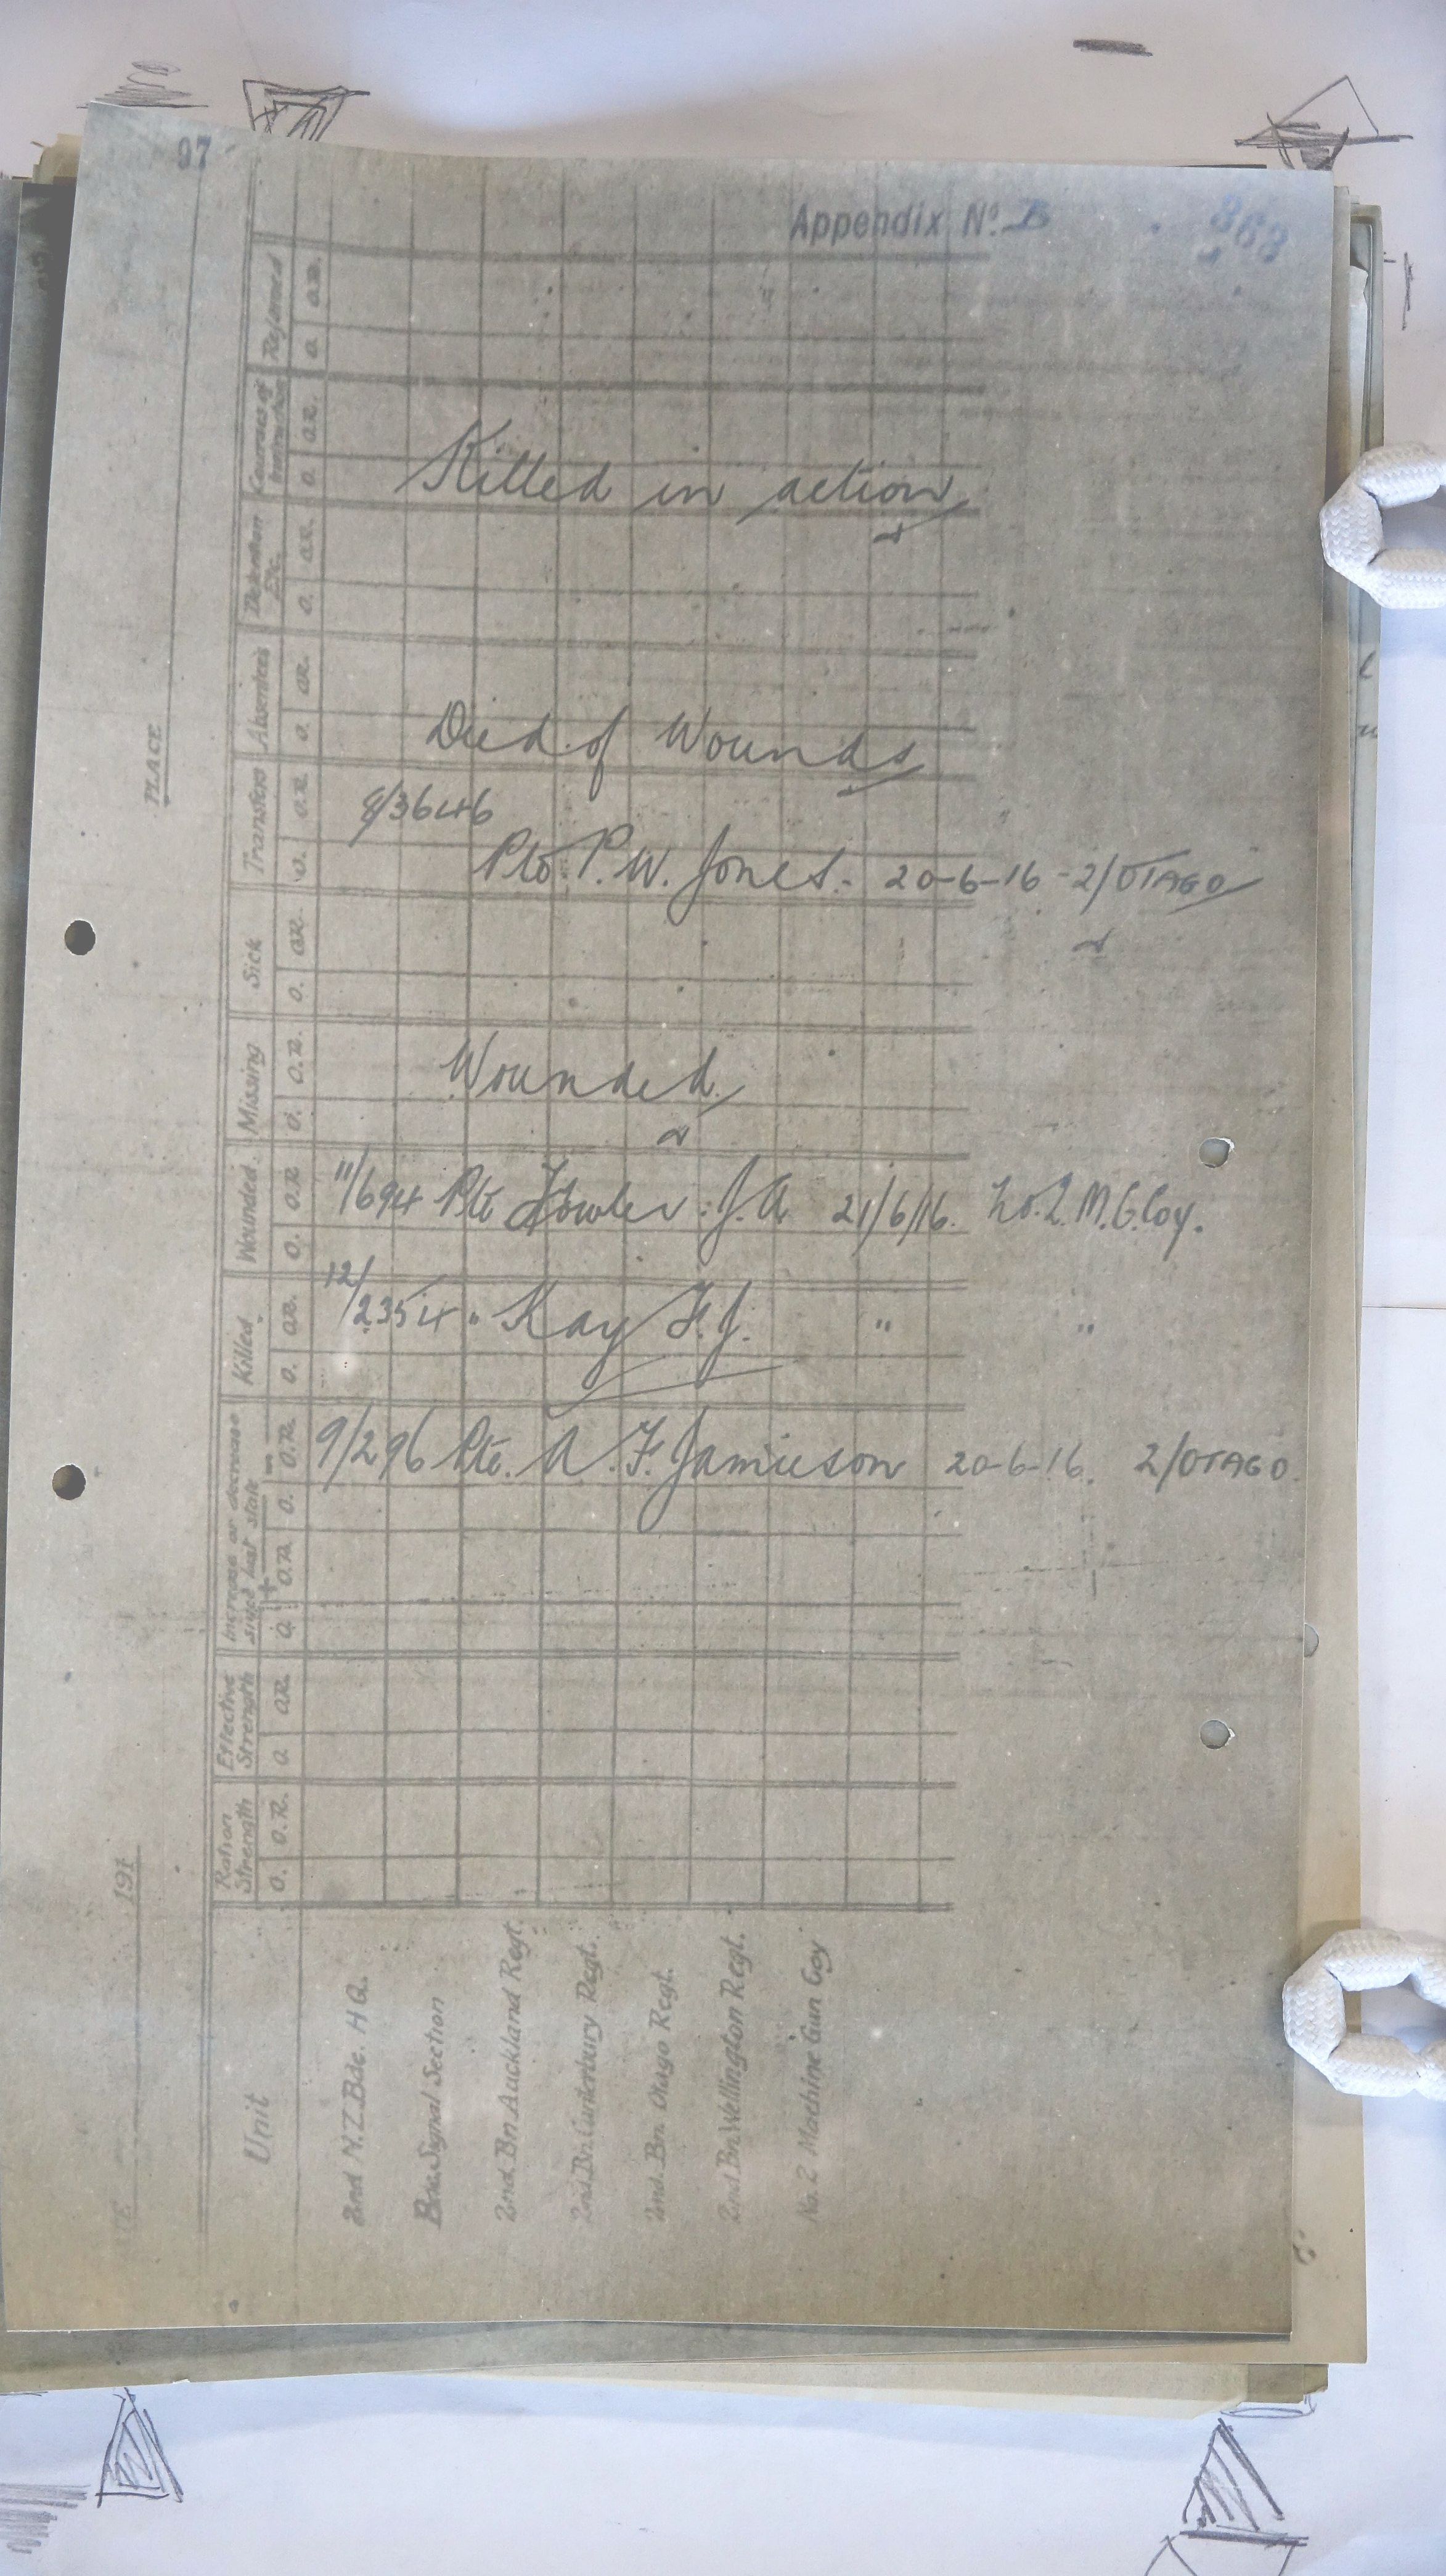 97
Appendix No. B
868
Killed in action
Died of Wounds
8/3646
Pte P. W. Jones. - 20-6-16 - 2/OTAGO
Wounded.
11/694 Pte Fowler. J. A. 21/6/16. No. 2. M. G. Coy.
12/2354 " Kay F. J. " "
9/296 Pte. A. F. Jamieson 20-6-16. 2/OTAGO.
PLACE
191
Unit
Ration Strength
Effective Strength
Increase or decrease since last state
Killed
Wounded
Missing
Sick
Transfers
Absentees
Detention Etc.
Courses of Instruction
Rejoined
O. O.R. O. O.R. O. + O.R. O. - O.R. O. O.R. O. O.R. O. O.R. O. O.R. O. O.R. O. O.R. O. O.R. O. O.R. O. O.R.
2nd N.Z. Bde. H Q.
Bde. Signal Section
2nd Bn Auckland Regt.
2nd Bn. Canterbury Regt.
2nd. Bn. Otago Regt.
2nd Bn. Wellington Regt.
No. 2 Machine Gun Coy